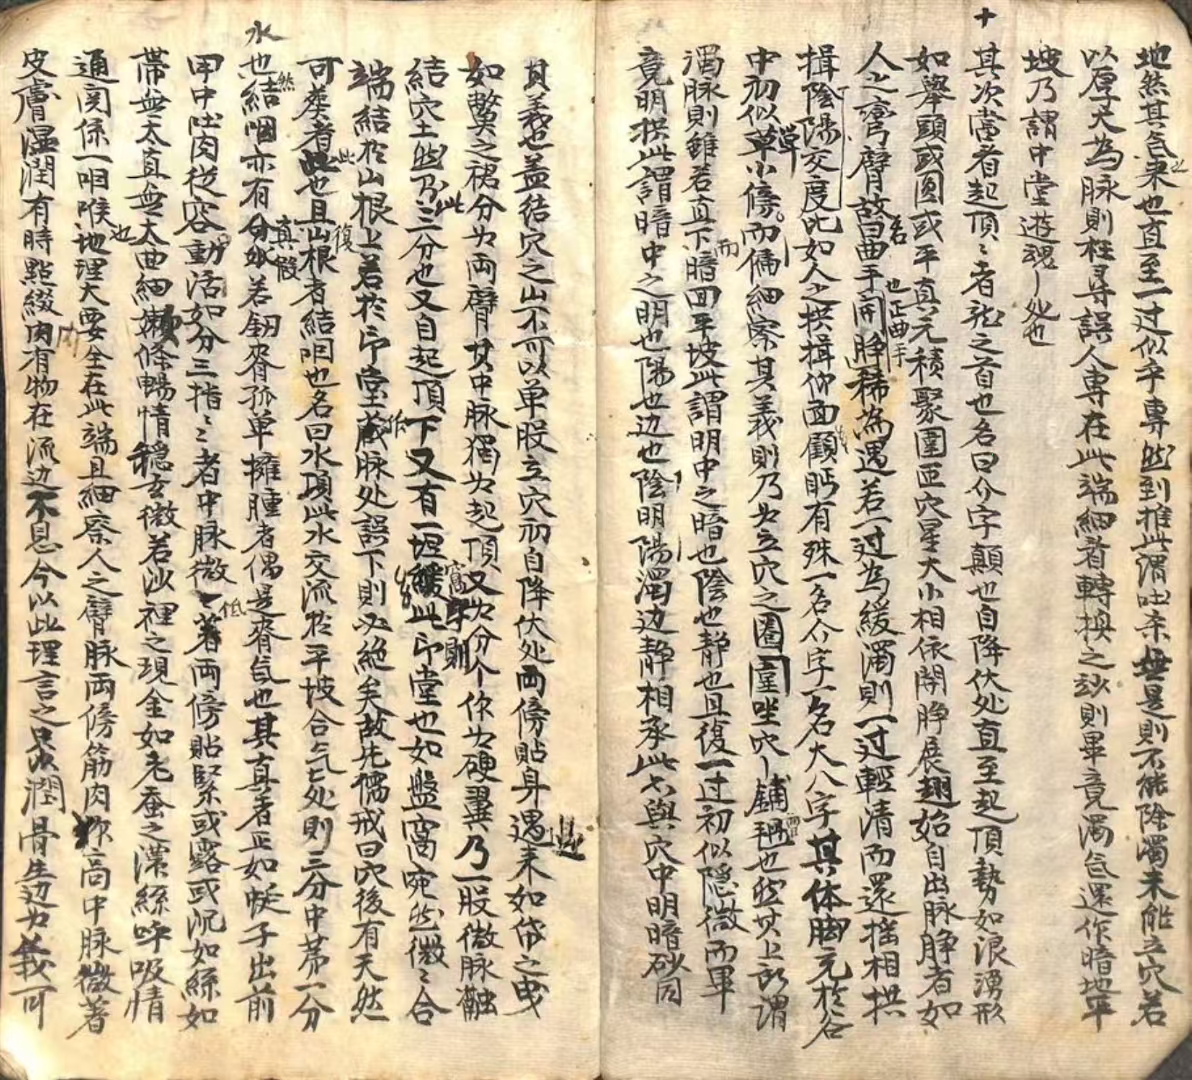 地然其气衆也直至一过似乎專然到推此謂吐柰 無是則不能除濁未能立穴若
以厚大為脉則枉尋誤人專在此端細看轉換之沙則畢竟濁气還作暗地平
坡乃謂中堂遊魂処也
其次當看起頂〻者龙之首也名曰分字顛也自降伏处直至起頂勢如浪湧形
如舉頭或圓或平真元積聚圍匝穴星大小相依開睁展翅始自出脉睁者如
人之弯臂故名曰曲手開睁稀為遇若一过為緩濁則一过輕清而還摇相拱
揖陰陽交度比如人之拱揖仰面顧眄有殊一名分字一名大八字其体脚元於谷
中初似草小條而偏細察其義則乃为立穴之圈圍坐穴鋪也然其上所謂
濁脉則雖若直下暗回平坡此謂明中之暗也陰也静也且復一过初似隐微而軍
竟明拱此謂暗中之明也陽也边也陰明陽濁边静相承此与與穴中明暗砂同
其義也盖結穴之山不可以单股立穴初自降伏处两傍貼身遇来如帒之曳
如鷩之裙分为両臂其中脉獨为起頂又为分个你为硬翼乃一股微脉
結穴土然此乃三分也又自起頂下又有一緩此印堂也如盤窩宛然微〻合
端結於山根上若於印堂藏脉处誤下則必絶矣故先儒戒曰穴後有天然
可葬者此也且山根者結咽也名曰水項此水交流於平坡合气七处則三分中苐一分
水也然結咽亦有真假分水若釰脊孤单擁腫者偶是脊气也其真者正如蜓子出前
甲中吐肉從容動活如分三指〻者中脉微〻著両傍貼緊或露或沉如絲如
帶無太直無太曲細嫩條暢情穩玄微若沙裡之現金如老蚕之潩絲呼吸情
通関係一咽喉也地理大要全在此端且細察人之臂脉両傍筋肉高中脉微著
皮膚湿潤有時點綴肉有物在流边不息今以此理言之只以潤骨生边为義可